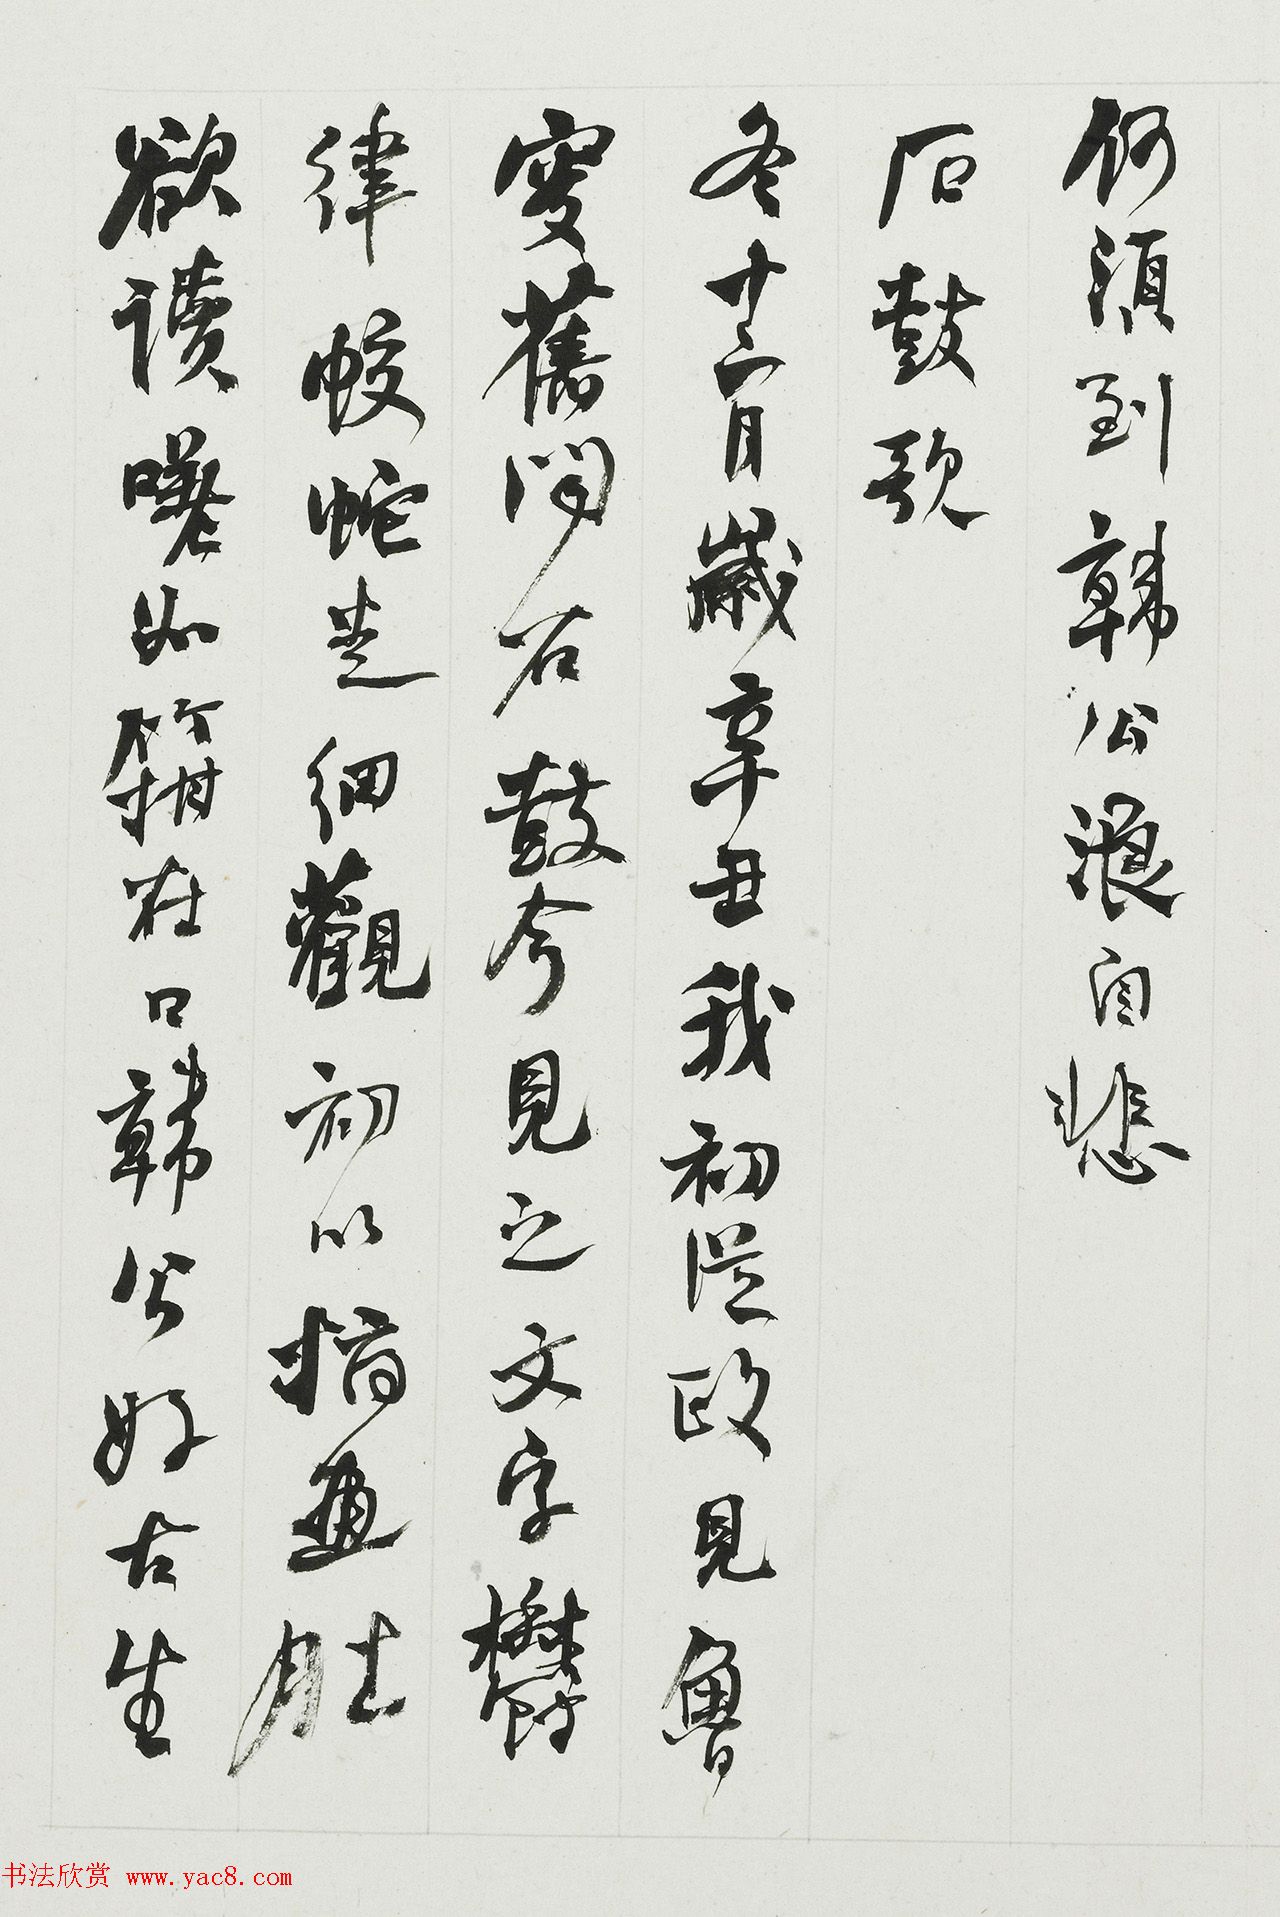 何須到韓公浪自悲
石鼓歌
冬十二月歲辛丑我初從政見魯
叟舊聞石鼓今見之文字鬱
律蛟蛇走細觀初以指畫肚
欲讀嗟如箝在口韓公好古生
书法欣赏 www.yac8.com